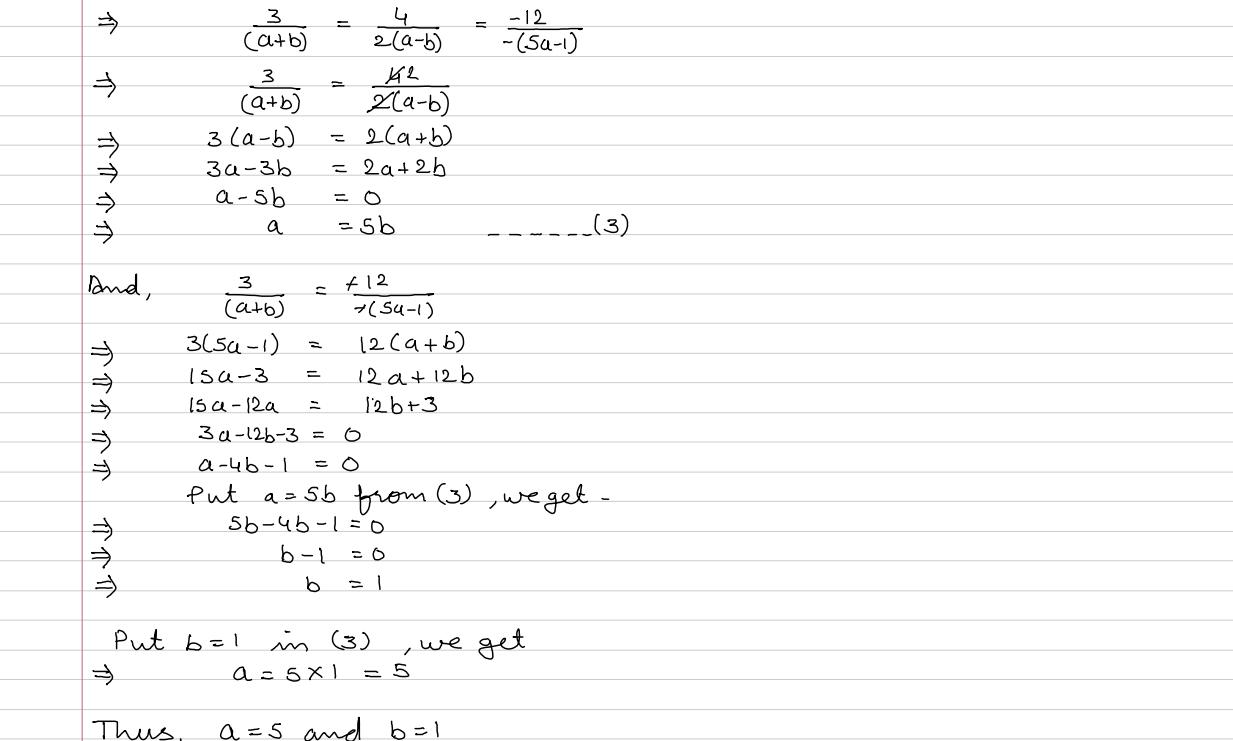 ⇒ 3/(a+b) = 4/2(a-b) = -12/-(5a-1)
⇒ 3/(a+b) = 4 2/2(a-b)
⇒ 3(a-b) = 2(a+b)
⇒ 3a-3b = 2a+2b
⇒ a-5b = 0
⇒ a = 5b ------(3)
And, 3/(a+b) = -12/-(5a-1)
⇒ 3(5a-1) = 12(a+b)
⇒ 15a-3 = 12a+12b
⇒ 15a-12a = 12b+3
⇒ 3a-12b-3 = 0
⇒ a-4b-1 = 0
Put a=5b from (3), we get -
⇒ 5b-4b-1=0
⇒ b-1 = 0
⇒ b = 1
Put b=1 in (3), we get
⇒ a=5×1 = 5
Thus, a=5 and b=1